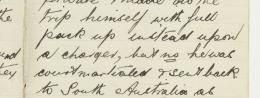 trip himself with full
pack up instead upon
a charger, but no he was
courtmartialed & sent back
to South Australia as